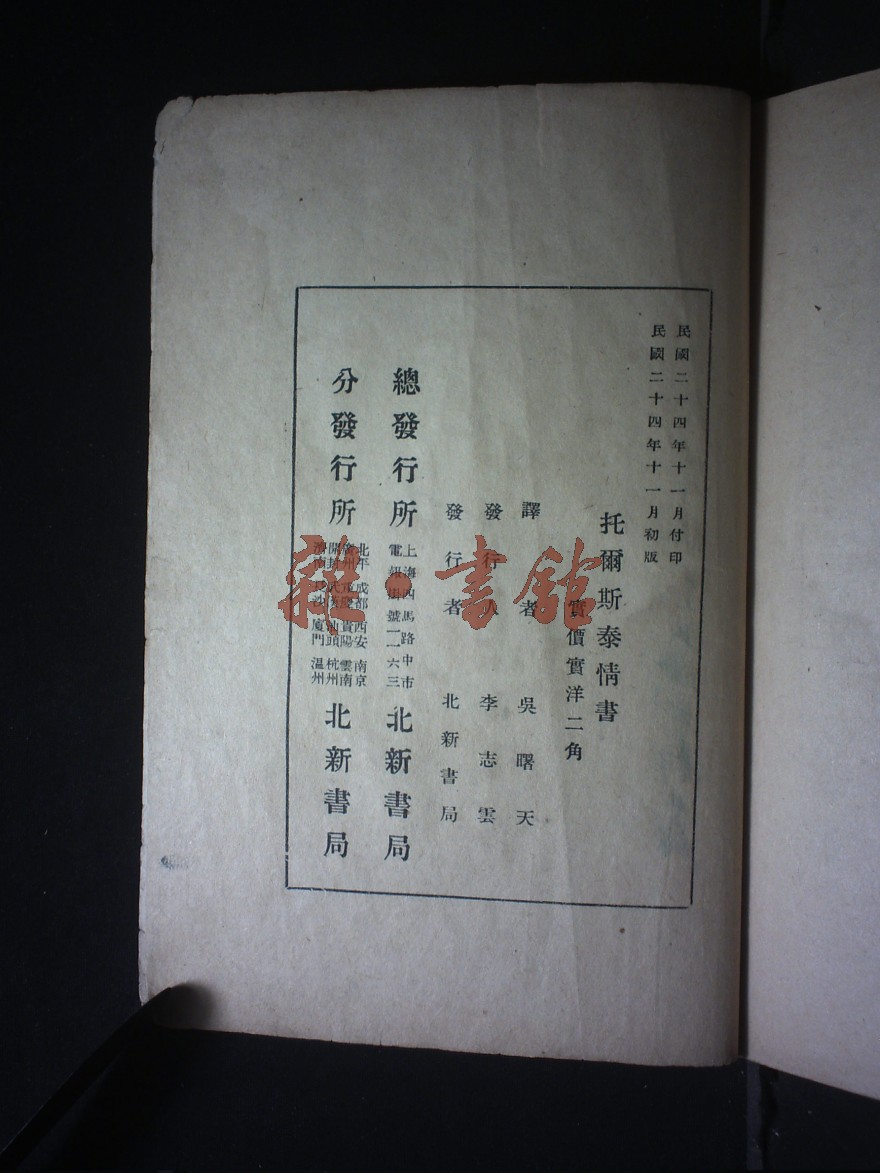 民國二十四年十一月付印
民國二十四年十一月初版
托爾斯泰情書
實價實洋二角
譯者 吳曙天
發行人 李志雲
發行者 北新書局
總發行所 上海四馬路中市 電報掛號二一六三 北新書局
分發行所 北平 成都 西安 南京 廣州 重慶 貴陽 雲南 開封 武漢 汕頭 杭州 濟南 長沙 廈門 溫州 北新書局
雜·書館